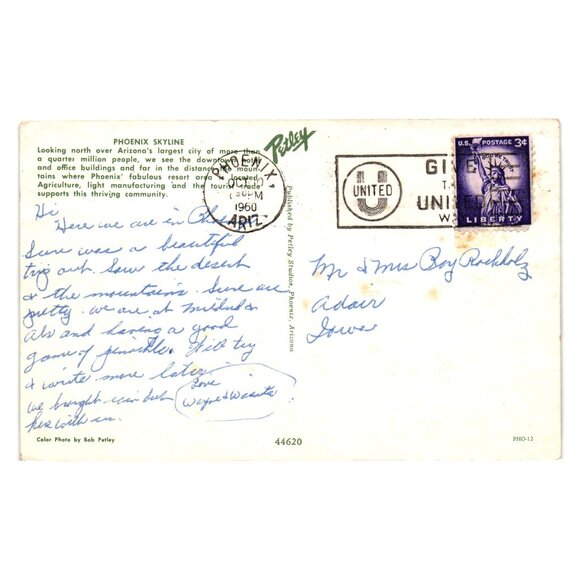 PHOENIX SKYLINE
Looking north over Arizona's largest city of more than
a quarter million people, we see the downtown
and office buildings and far in the distance moun-
tains where Phoenix' fabulous resort area is located.
Agriculture, light manufacturing and the tourist trade
supports this thriving community.
Petley
PHOENIX,
OCT
PM
1960
ARIZ.
U
UNITED
GIVE
UNITED
WAY
U.S. POSTAGE 3¢
LIBERTY
Hi
Here we are in
Sure was a beautiful
trip out. Saw the desert
& the mountains. Sure are
pretty. We are at
and having a good
game of pinochle. Will try
& write more later.
we brought
with us.
Love
Wayne &
Mr & Mrs Roy Rockholz
Adair
Iowa
Published by Petley Studios, Phoenix, Arizona
Color Photo by Bob Petley
44620
PHO-12